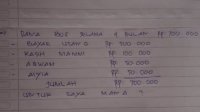 DANA BOS SELAMA 4 BULAN Rp 700.000
- BAYAR UTANG Rp 400.000
- KASIH MAMNI Rp 100.000
- ARWAN Rp 50.000
- AIYLA Rp 50.000
JUMLAH Rp 700.000
UNTUK SAYA MANA ?